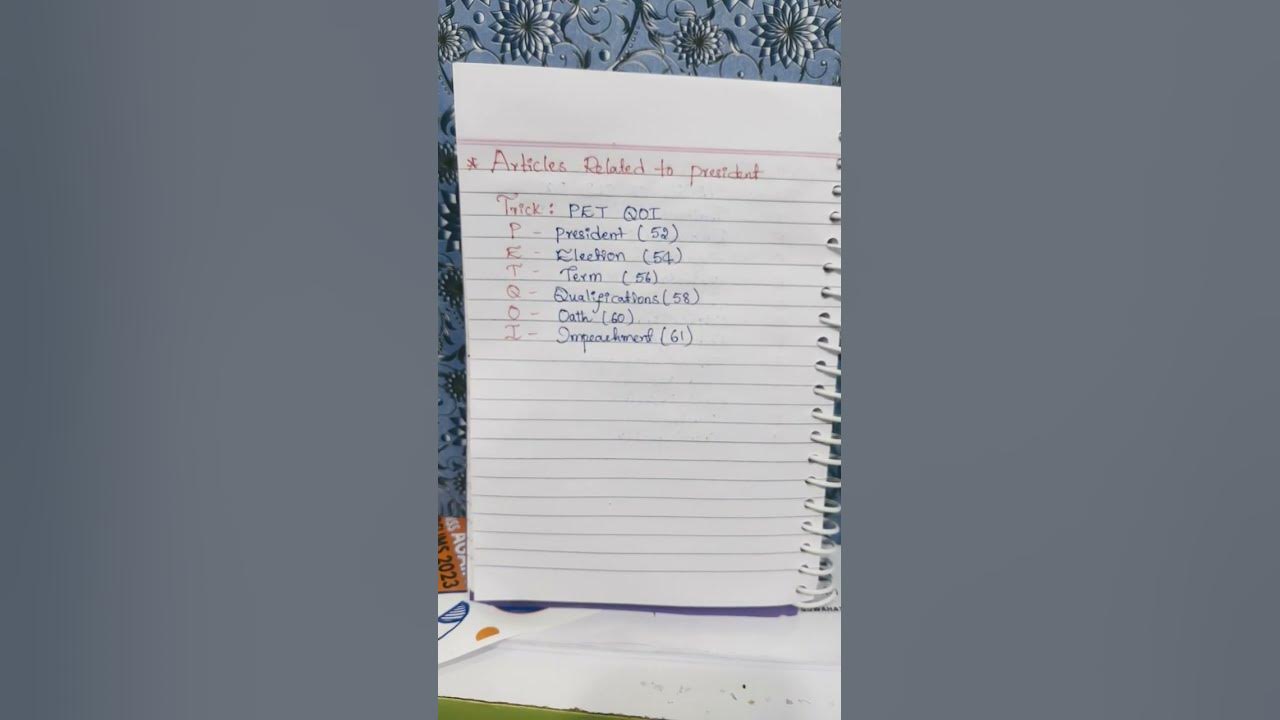 * Articles Related to president
Trick: PET QOI
P - President (52)
E - Election (54)
T - Term (56)
Q - Qualifications (58)
O - Oath (60)
I - Impeachment (61)
2023